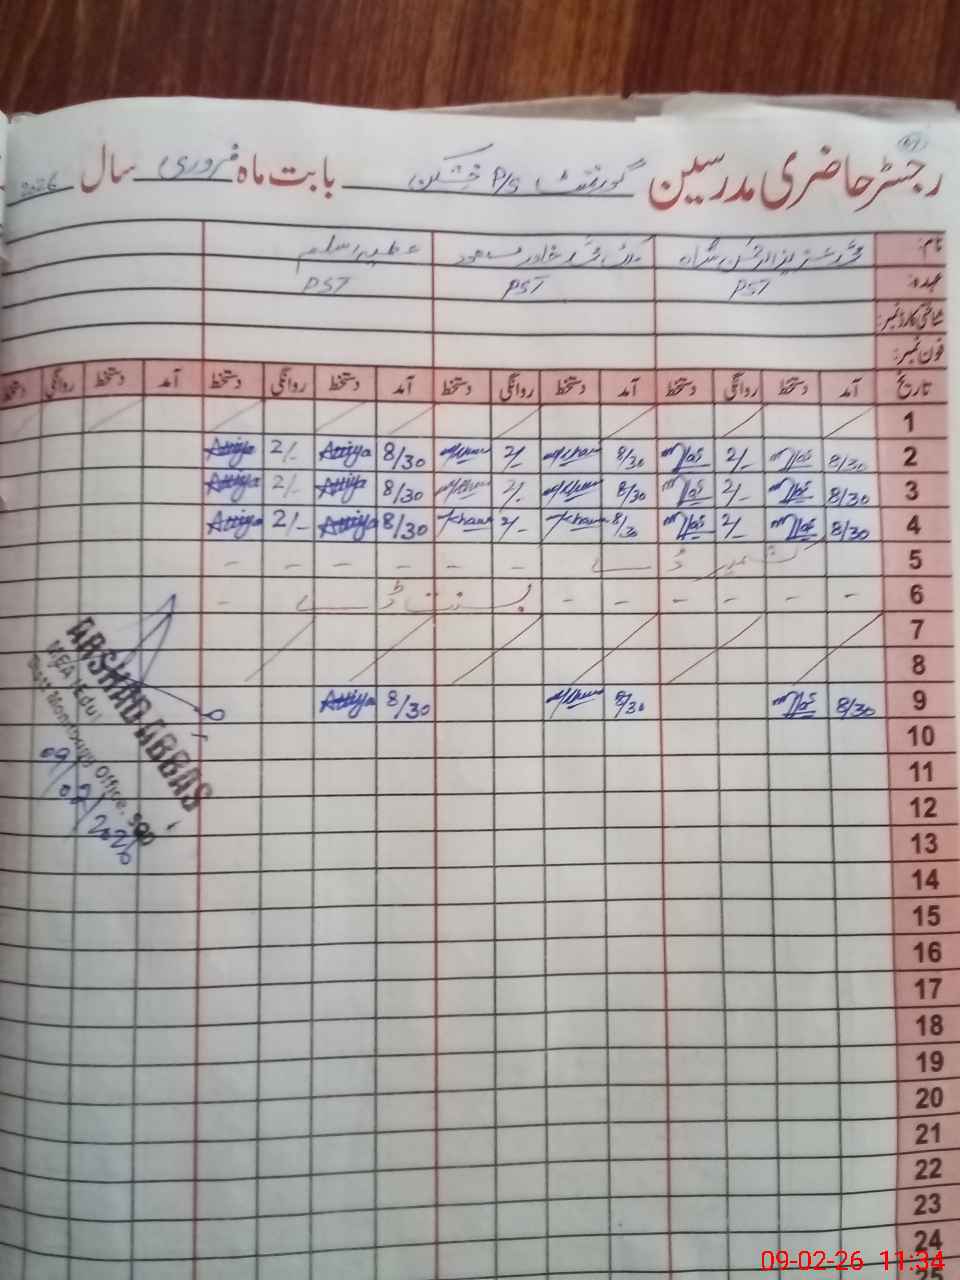 رجسٹر حاضری مدرسین گورنمنٹ P/S بابت ماہ فروری سال 2026
نام:
عہدہ: PST PST PST
شناختی کارڈ نمبر:
فون نمبر:
تاریخ آمد دستخط روانگی دستخط آمد دستخط روانگی دستخط آمد دستخط روانگی دستخط آمد دستخط روانگی دستخط
1
2 8/30 2/- 8/30 2/- 8/30 Attiya 2/- Attiya
3 8/30 2/- 8/30 2/- 8/30 Attiya 2/- Attiya
4 8/30 2/- 8/30 Khan 2/- Khan 8/30 Attiya 2/- Attiya
5 کشمیر ڈے - - - - - -
6 - - - - - - بسنت ڈے -
7
8
9 8/30 8/30 8/30 Attiya
10
11
12
13
14
15
16
17
18
19
20
21
22
23
24
25
ARSHAD ABBAS
MEA (Edu)
Distt Monitoring Office, SGD
09/02/2026
09-02-26 11:34